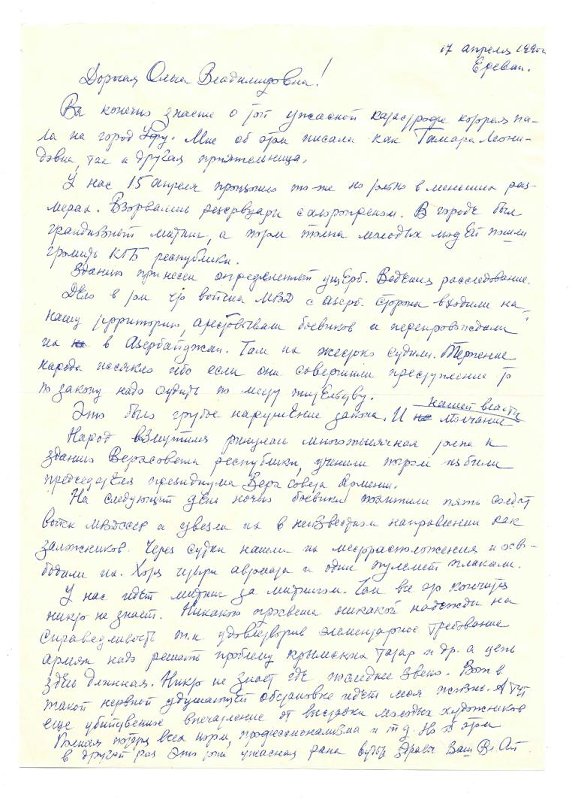 17 апреля 1990г
Ереван.
Дорогая Ольга Владимировна!
Вы конечно знаете о той ужасной катастрофе которая па-
ла на город Уфу. Мне об этом писали как Тамара Леони-
довна, так и другая приятельница.
У нас 15 апреля произошло то же но только в меньших раз-
мерах. Взорвались резервуары с В городе был
грандиозный митинг, а потом толпа молодых людей пошли
громить КГБ республики.
Зданию принесен определенный ущерб. Ведется расследование.
Дело в том что войска МВД с азерб. стороны входили на
нашу территорию, арестовывали боевиков и переправляли
их в Азербайджан. Там их жестоко судили. Терпение
народа иссякло ибо если они совершили преступление то
по закону надо судить по месту жительству.
Это было грубое нарушение закона. И нашей власти молчание
Народ взмутился ринулась многотысячная толпа к
зданию Верх.совета республики, учинили погром избили
председателя президиума Верх совета Армении.
На следующий день ночью боевики похитили пять солдат
войск МВД СССР и увезли их в неизвестном направлении как
заложников. Через сутки нашли их месторасположения и осво-
бодили их. Хотя четыре автомата и один пулемет
У нас идет митинг за митингом. Чем все это кончится
никто не знает. Никакого просвета никакой надежды на
справедливость т.к. удовлетворив элементарное требование
армян надо решать проблему крымских татар и др. а цепь
здесь длинная. Никто не знает где последнее звено. Вот в
такой нервной удушающей обстановке идет моя жизнь. А тут
еще убийственное впечатление от выставки молодых художников
Полная потеря всех норм, профессионализма и т.д. Но об этом
в другой раз Это тоже ужасная рана Будьте здравы Ваш